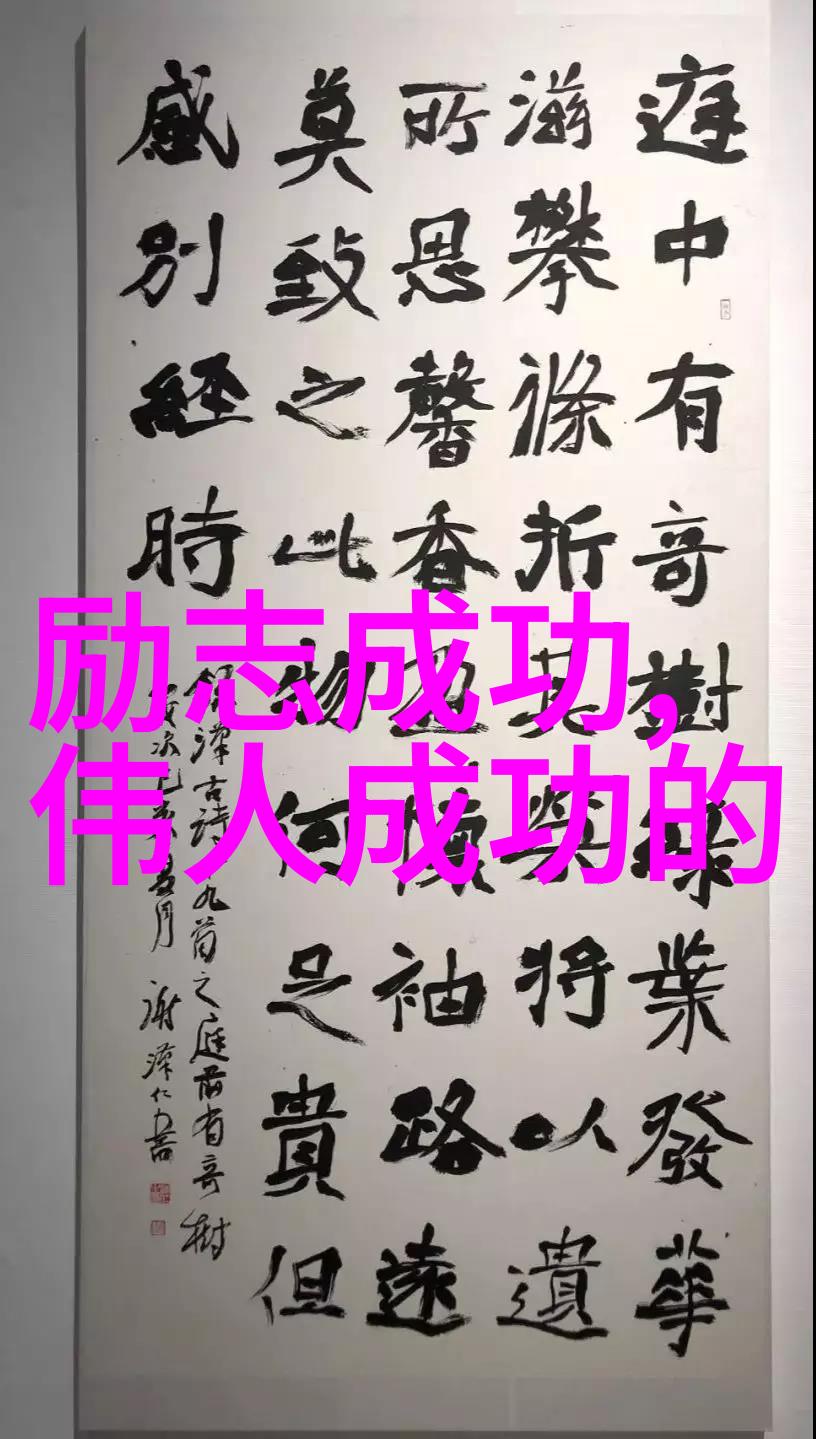 庭中有奇樹綠葉發華
滋攀條折其榮將以遺
所思馨香盈懷袖路遠
莫致之此物何足貴但
感別經時
漢古詩九首之庭前有奇樹
月 謝澤仁書
励志成功,
伟人成功的